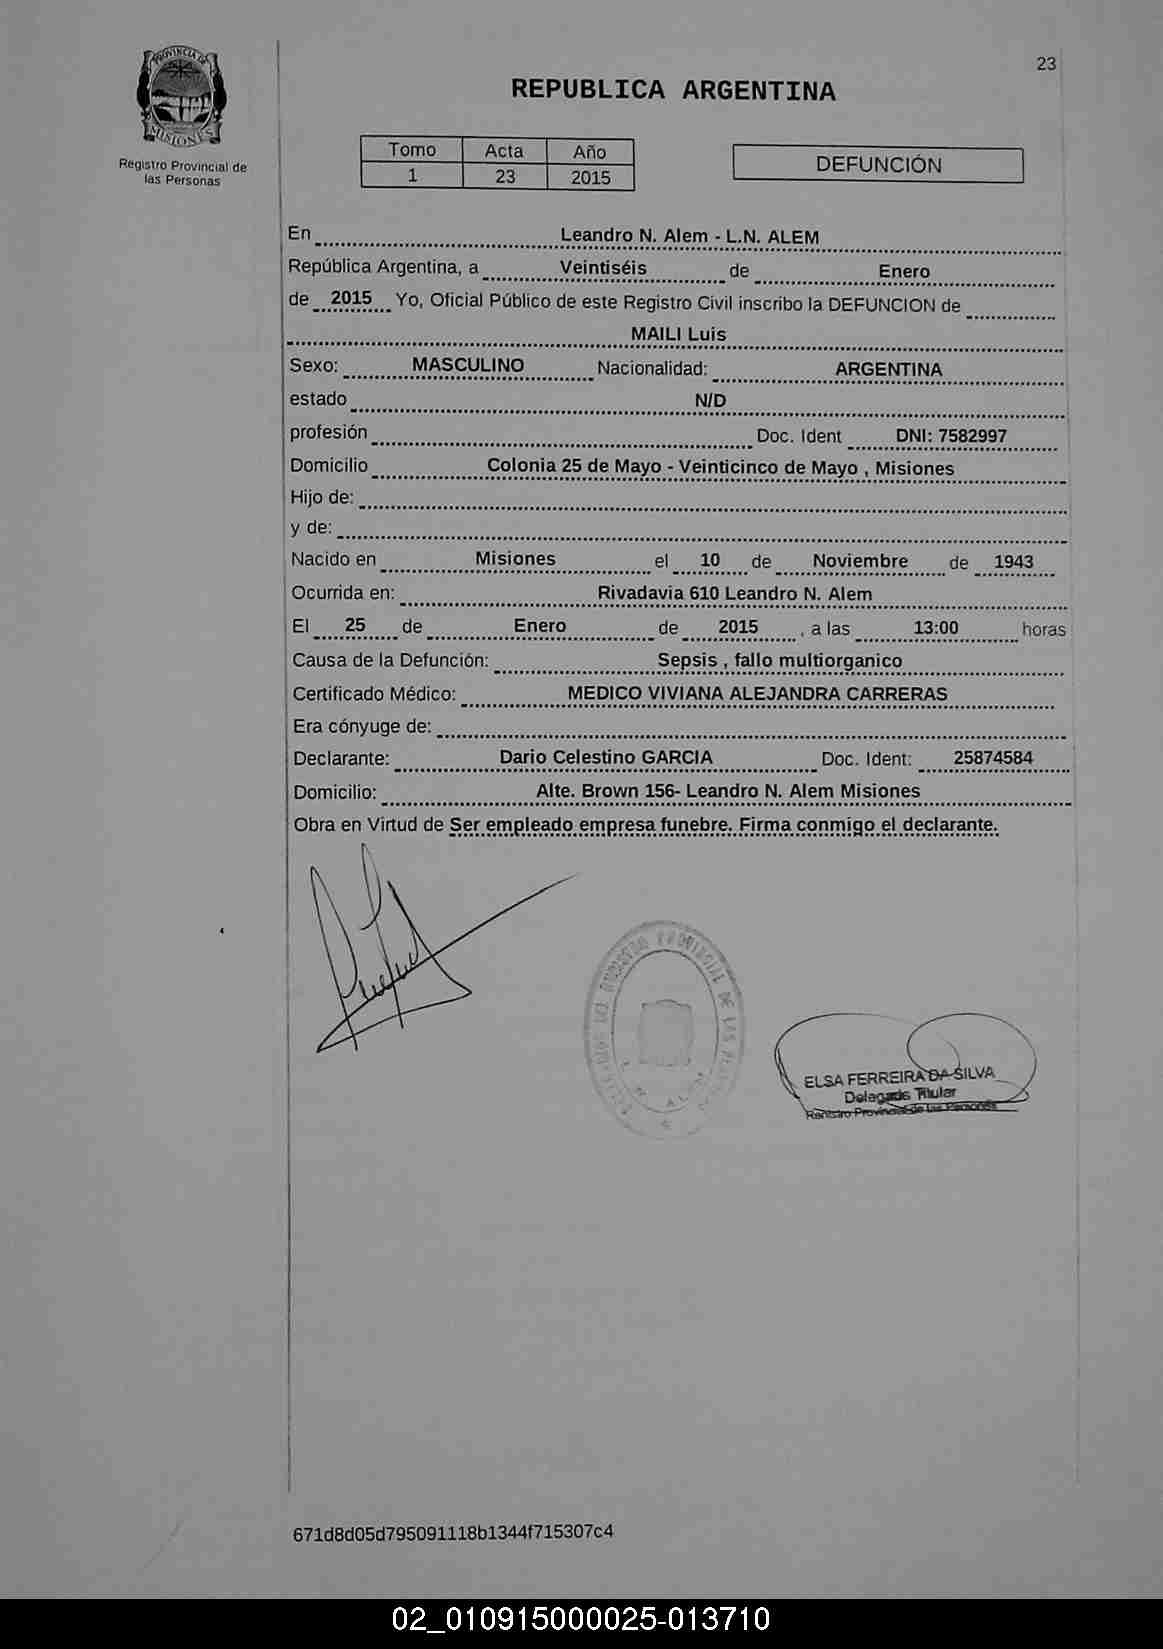 23
PROVINCIA DE
MISIONES
Registro Provincial de
las Personas
REPUBLICA ARGENTINA
Tomo Acta Año
1 23 2015
DEFUNCIÓN
En Leandro N. Alem - L.N. ALEM
República Argentina, a Veintiséis de Enero
de 2015 Yo, Oficial Público de este Registro Civil inscribo la DEFUNCION de
MAILI Luis
Sexo: MASCULINO Nacionalidad: ARGENTINA
estado N/D
profesión Doc. Ident DNI: 7582997
Domicilio Colonia 25 de Mayo - Veinticinco de Mayo , Misiones
Hijo de:
y de:
Nacido en Misiones el 10 de Noviembre de 1943
Ocurrida en: Rivadavia 610 Leandro N. Alem
El 25 de Enero de 2015 , a las 13:00 horas
Causa de la Defunción: Sepsis , fallo multiorganico
Certificado Médico: MEDICO VIVIANA ALEJANDRA CARRERAS
Era cónyuge de:
Declarante: Dario Celestino GARCIA Doc. Ident: 25874584
Domicilio: Alte. Brown 156- Leandro N. Alem Misiones
Obra en Virtud de Ser empleado empresa funebre. Firma conmigo el declarante.
PROVINCIAL DE LAS
ELSA FERREIRA DA SILVA
Delegada Titular
Registro Provincial de las Personas
671d8d05d795091118b1344f715307c4
02_010915000025-013710